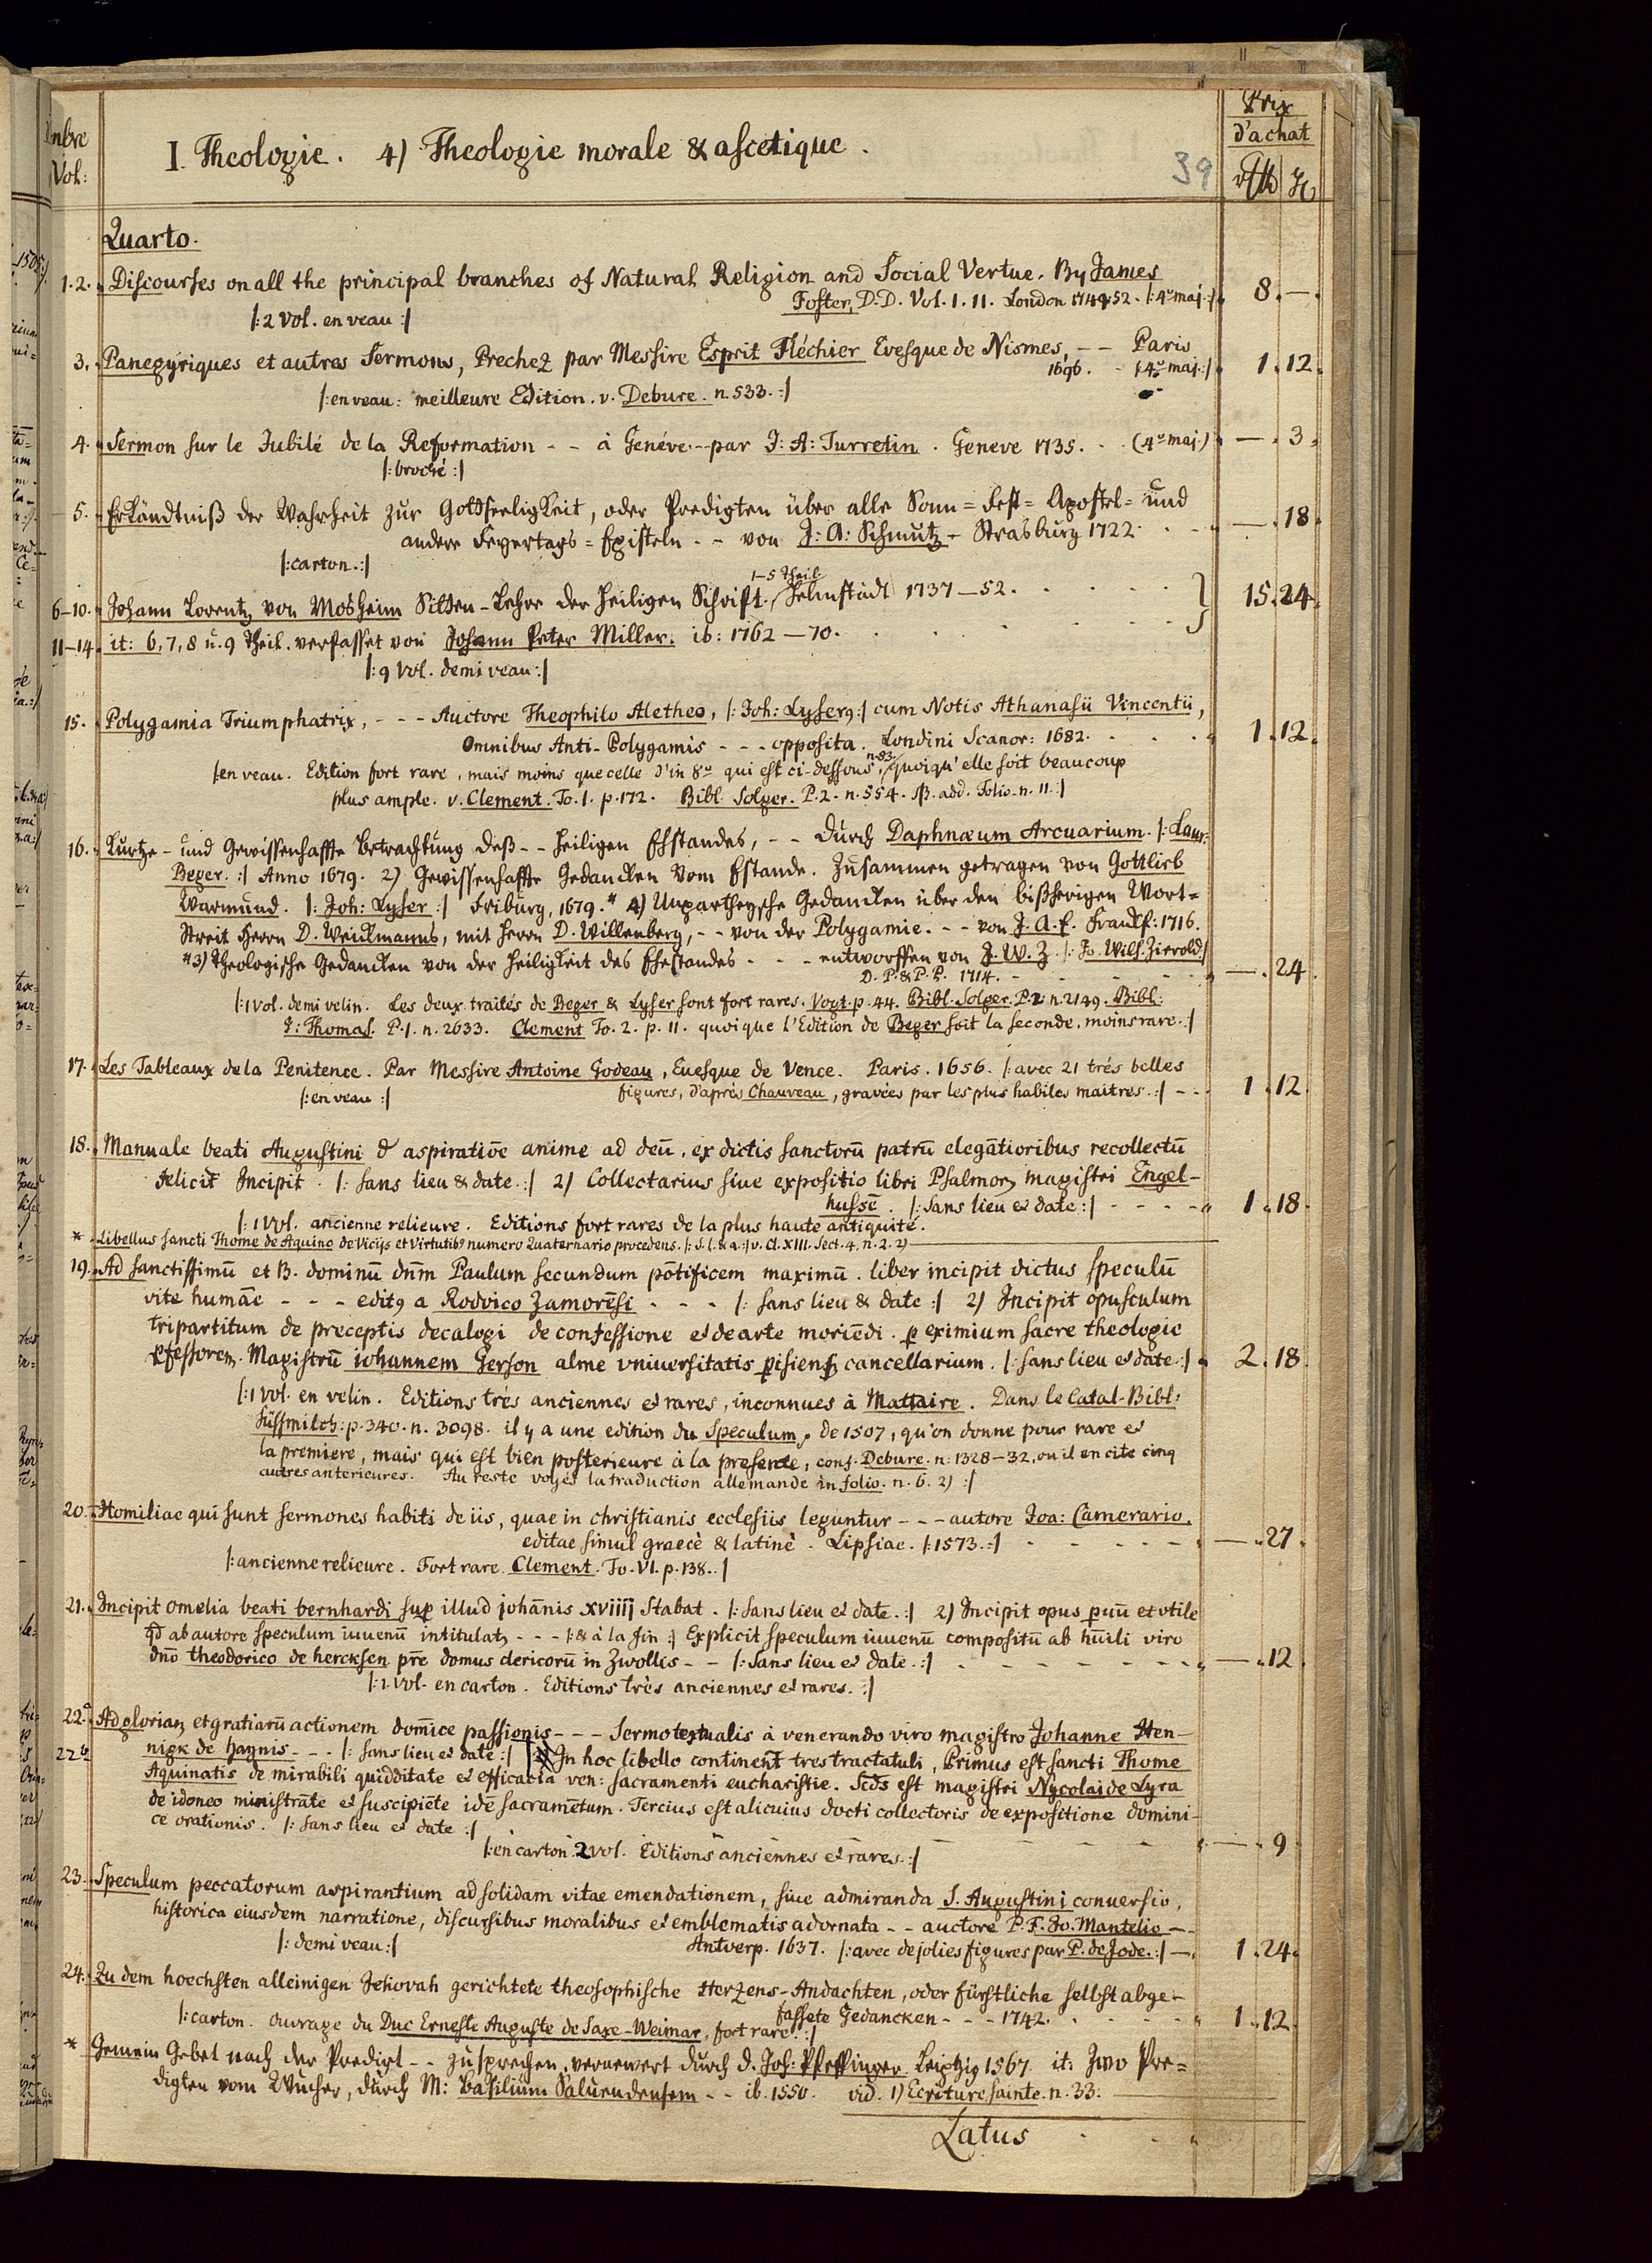 Prix
d'achat
Vol:
I. Theologie. 4) Theologie morale & ascetique.
39
Quarto.
1.2. Discourses on all the principal branches of Natural Religion and Social Vertue. By James
Foster, D.D. Vol. I. II. London 1749-52. |: 4º maj: :| 8. —.
|: 2 Vol. en veau :|
3. Panegyriques et autres Sermons, Prechez par Messire Esprit Fléchier Evesque de Nismes, -- Paris
1696. - |: 4º maj: :| 1. 12.
|: en veau: meilleure Edition. v. Debure. n. 533. :|
4. Sermon sur le Jubilé de la Reformation -- à Genéve -- par J: A: Turretin. Geneve 1735. . . (4º maj.) —. 3.
|: broché :|
5. Erkändtniß der Wahrheit zur Gottseeligkeit, oder Predigten über alle Sonn= Fest= Apostel= und
andere Feyertags=Episteln -- von J: A: Schmutz - Strasburg 1722. —. 18.
|: carton. :|
1-5 Theil.
6-10. Johann Lorentz von Mosheim Sitten-Lehre der heiligen Schrift. Helmstädt 1737-52. } 15. 24.
11-14. it: 6, 7, 8 u. 9 Theil. verfasset von Johann Peter Miller. ib: 1762-70.
|: 9 Vol. demi veau :|
15. Polygamia Triumphatrix, --- Auctore Theophilo Aletheo, |: Joh: Lysero :| cum Notis Athanasii Vincentii,
Omnibus Anti-Polygamis --- opposita. Londini Scanor: 1682. 1. 12.
|: en veau. Edition fort rare, mais moins que celle d'in 8º qui est ci-dessous, n. 83. quoiqu'elle soit beaucoup
plus ample. v. Clement. To. 1. p. 172. Bibl. Solger. P. 2. n. 554. add. Folio. n. 11. :|
16. Kurtze - und Gewissenhaffte Betrachtung deß -- heiligen Ehstandes, -- durch Daphnæum Arcuarium. |: Laur:
Beger. :| Anno 1679. 2) Gewissenhaffte Gedancken vom Ehstande. Zusammen getragen von Gottlieb
Warmund. |: Joh: Lyser :| Friburg, 1679. # 4) Unpartheysche Gedancken über den bißherigen Wort=
Streit Herrn D. Weidtmanns, mit Herrn D. Willenberg, -- von der Polygamie. -- von J. A. F. Franckf: 1716.
# 3) Theologische Gedancken von der Heiligkeit des Ehestandes --- entworffen von J. W. Z. |: Jo. Wilh. Zierold :|
D. P. & P. P. 1714. —. 24.
|: 1 Vol. demi velin. Les deux traités de Beger & Lyser sont fort rares. Vogt. p. 44. Bibl. Solger. P. 2. n. 2149. Bibl:
J: Thomas. P. 1. n. 2633. Clement To. 2. p. 11. quoique l'Edition de Beger soit la seconde, moins rare. :|
17. Les Tableaux de la Penitence. Par Messire Antoine Godeau, Euesque de Vence. Paris. 1656. |: avec 21 trés belles
figures, d'aprés Chauveau, gravées par les plus habiles maitres. :| -- 1. 12.
|: en veau :|
18. Manuale beati Augustini d aspiratiōe anime ad deū, ex dictis sanctorū patrū elegātioribus recollectū
felicit Incipit. |: sans lieu & date. :| 2) Collectarius siue expositio libri Psalmorꝫ magistri Engel-
hussē. |: sans lieu et date :| 1. 18.
|: 1 Vol. ancienne relieure. Editions fort rares de la plus haute antiquité.
* Libellus sancti Thome de Aquino de Vicijs et Virtutibꝫ numero Quaternario procedens. |: S. l. & a. :| v. Cl. XIII. Sect. 4. n. 2. 2)
19. Ad sanctissimū et B. dominū dn̄m Paulum secundum pōtificem maximū. liber incipit dictus speculū
vite humāe --- editꝰ a Rodorico Zamorēsi --- |: sans lieu & date :| 2) Incipit opusculum
tripartitum de preceptis decalogi de confessione et de arte moriēdi. p eximium sacre theologie
pfessorem. Magistrū iohannem Gerson alme vniuersitatis pisiensꝫ cancellarium. |: sans lieu et date. :| 2. 18.
|: 1 Vol. en velin. Editions trés anciennes et rares, inconnues à Mattaire. Dans le Catal. Bibl:
Süssmilch: p. 340. n. 3098. il y a une edition du Speculum, de 1507, qu'on donne pour rare et
la premiere, mais qui est bien posterieure à la presente, conf. Debure. n: 1328-32, ou il en cite cinq
autres anterieures. Au reste voyés la traduction allemande in folio. n. 6. 2) :|
20. Homiliae qui sunt sermones habiti de iis, quae in christianis ecclesiis leguntur --- autore Joa: Camerario.
editae simul graecè & latinè. Lipsiae. |: 1573. :| —. 27.
|: ancienne relieure. Fort rare. Clement. To. VI. p. 138. :|
21. Incipit omelia beati bernhardi sup illud johānis xviiij Stabat. |: sans lieu et date. :| 2) Incipit opus puū et vtile
qd ab autore speculum iuuenū intitulatꝫ --- |: & à la fin :| Explicit speculum iuuenū compositū ab hūili viro
dn̄o theodorico de hercksen pr̄e domus clericorū in Zwollis -- |: sans lieu et date. :| —. 12.
|: 1. Vol. en carton. Editions très anciennes et rares. :|
22.a Ad gloriam et gratiarū actionem domīce passionis --- Sermo textualis à venerando viro magistro Johanne Hen-
22b nigk de haynis --- |: sans lieu et date :| 2) In hoc libello continent̄ tres tractatuli, Primus est sancti Thome
Aquinatis de mirabili quidditate et efficacia ven: sacramenti eucharistie. Scds est magistri Nycolai de Lyra
de idoneo ministrāte et suscipiēte idē sacramētum. Tercius est alicuius docti collectoris de expositione domini-
ce orationis. |: sans lieu et date :| —. 9.
|: en carton. 2 vol. Editions anciennes et rares. :|
23. Speculum peccatorum aspirantium ad solidam vitae emendationem, siue admiranda S. Augustini conuersio,
historica eiusdem narratione, discursibus moralibus et emblematis adornata -- auctore P. F. Jo. Mantelio --
|: demi veau :| Antverp. 1637. |: avec de jolies figures par P. de Jode. :| — 1. 24.
24. Zu dem hoechsten alleinigen Jehovah gerichtete theosophische Herzens-Andachten, oder fürstliche selbst abge-
fassete Gedancken --- 1742. 1. 12.
|: carton. Ouvrage du Duc Erneste Auguste de Saxe-Weimar, fort rare. :|
* Gemein Gebet nach der Predigt -- zu sprechen, vernewert durch D. Joh: Pfeffinger. Leiptzig 1567. it: Zwo Pre=
digten vom Wucher, durch M: Basilium Saluendensem -- ib. 1550. vid. 1) Ecriture Sainte. n. 33.
Latus